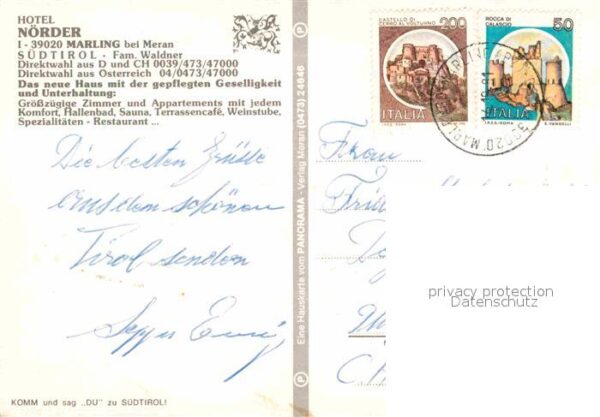 HOTEL
NÖRDER
I - 39020 MARLING bei Meran
SÜDTIROL - Fam. Waldner
Direktwahl aus D und CH 0039/473/47000
Direktwahl aus Österreich 04/0473/47000
Das neue Haus mit der gepflegten Geselligkeit
und Unterhaltung:
Großzügige Zimmer und Appartements mit jedem
Komfort, Hallenbad, Sauna, Terrassencafé, Weinstube,
Spezialitäten - Restaurant ...
Die besten Grüße
aus dem schönen
Tirol senden
KOMM und sag „DU" zu SÜDTIROL!
Eine Hauskarte vom PANORAMA - Verlag Meran (0473) 24646
CASTELLO DI
CERRO AL VOLTURNO
200
ITALIA
ROCCA DI
CALASCIO
50
ITALIA
Frau
privacy protection
Datenschutz